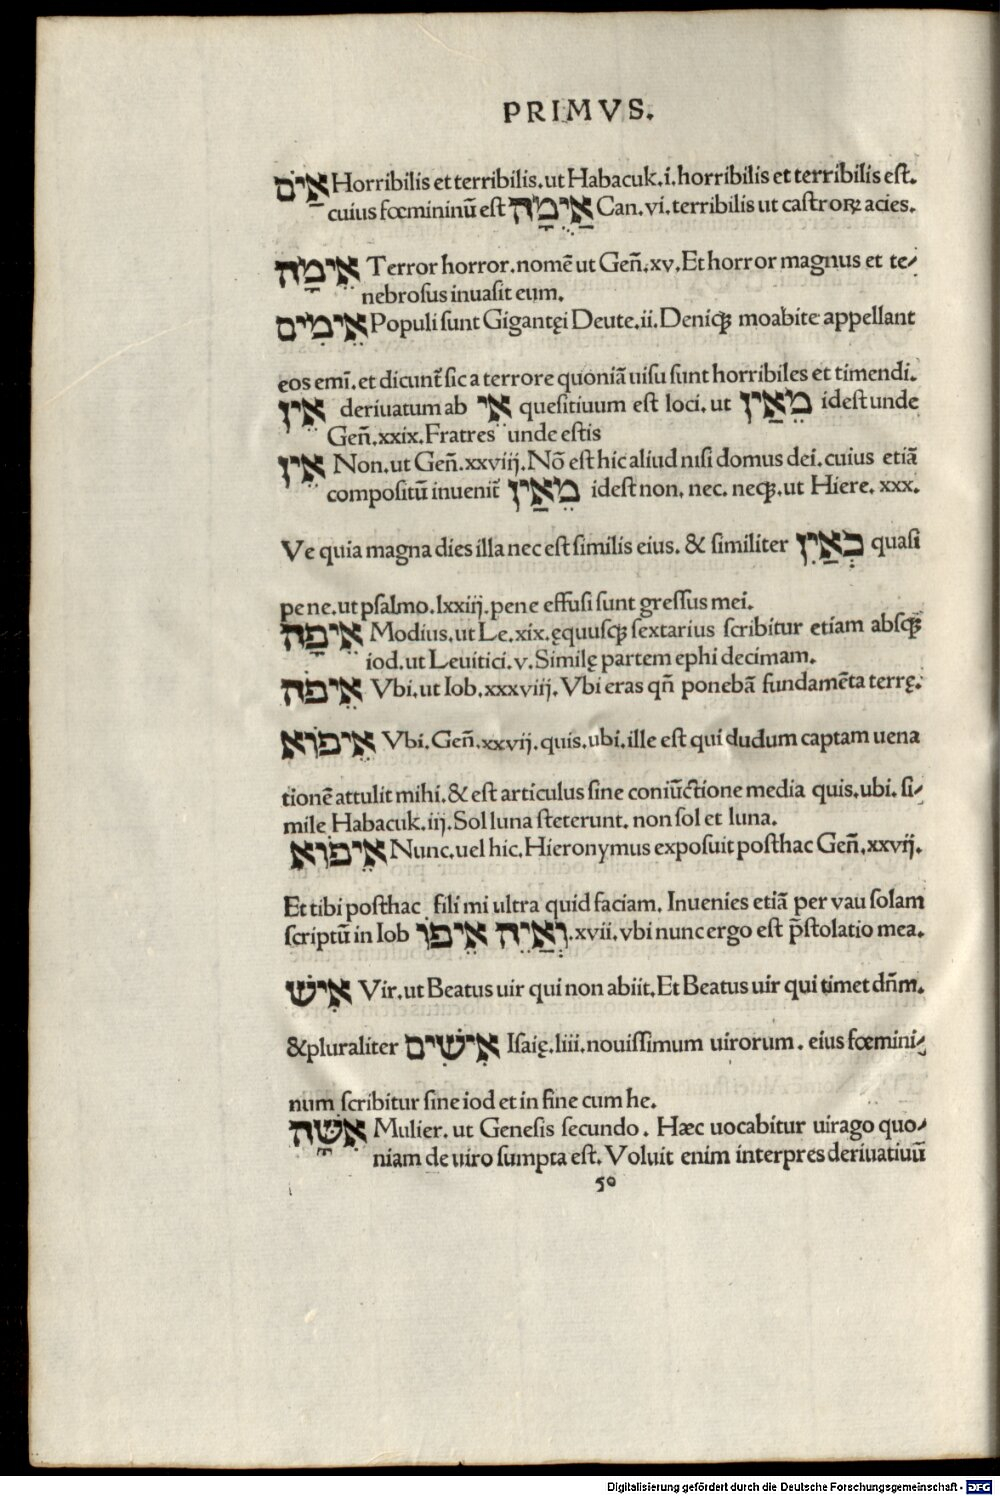 PRIMVS.
אָיֹם Horribilis et terribilis. ut Habacuk. i. horribilis et terribilis est.
cuius fœmininū est אֲיֻמָּה Can. vi. terribilis ut castroꝝ acies.
אֵימָה Terror horror. nomē ut Geñ. xv. Et horror magnus et te⸗
nebrosus inuasit eum.
אֵימִים Populi sunt Gigantęi Deute. ii. Deniqꝫ moabite appellant
eos emī. et dicunt̃ sic a terrore quoniā uisu sunt horribiles et timendi.
אֵין deriuatum ab אֵי quesitiuum est loci. ut מֵאַיִן idest unde
Geñ. xxix. Fratres unde estis
אֵין Non. ut Geñ. xxviij. Nō est hic aliud nisi domus dei. cuius etiā
compositū inuenit̃ מֵאַיִן idest non. nec. neqꝫ. ut Hiere. xxx.
Ve quia magna dies illa nec est similis eius. & similiter כְּאַיִן quasi
pene. ut psalmo. lxxiij. pene effusi sunt gressus mei.
אֵיפָה Modius. ut Le. xix. ęquusqꝫ sextarius scribitur etiam absqꝫ
iod. ut Leuitici. v. Similę partem ephi decimam.
אֵיפֹה Vbi. ut Iob. xxxviij. Vbi eras qñ ponebā fundamēta terrę.
אֵיפוֹא Vbi. Geñ. xxvij. quis. ubi. ille est qui dudum captam uena
tionē attulit mihi. & est articulus sine coniūctione media quis. ubi. si⸗
mile Habacuk. iij. Sol luna steterunt. non sol et luna.
אֵיפוֹא Nunc. uel hic. Hieronymus exposuit posthac Geñ. xxvij.
Et tibi posthac fili mi ultra quid faciam. Inuenies etiā per vau solam
scriptū in Iob וְאַיֵּה אֵיפוֹ. xvii. vbi nunc ergo est p̄stolatio mea.
אִישׁ Vir. ut Beatus uir qui non abiit. Et Beatus uir qui timet dñm.
& pluraliter אִישִׁים Isaię. liii. nouissimum uirorum. eius fœmini⸗
num scribitur sine iod et in fine cum he.
אִשָּׁה Mulier. ut Genesis secundo. Hæc uocabitur uirago quo⸗
niam de uiro sumpta est. Voluit enim interpres deriuatiuū
50
Digitalisierung gefördert durch die Deutsche Forschungsgemeinschaft - DFG